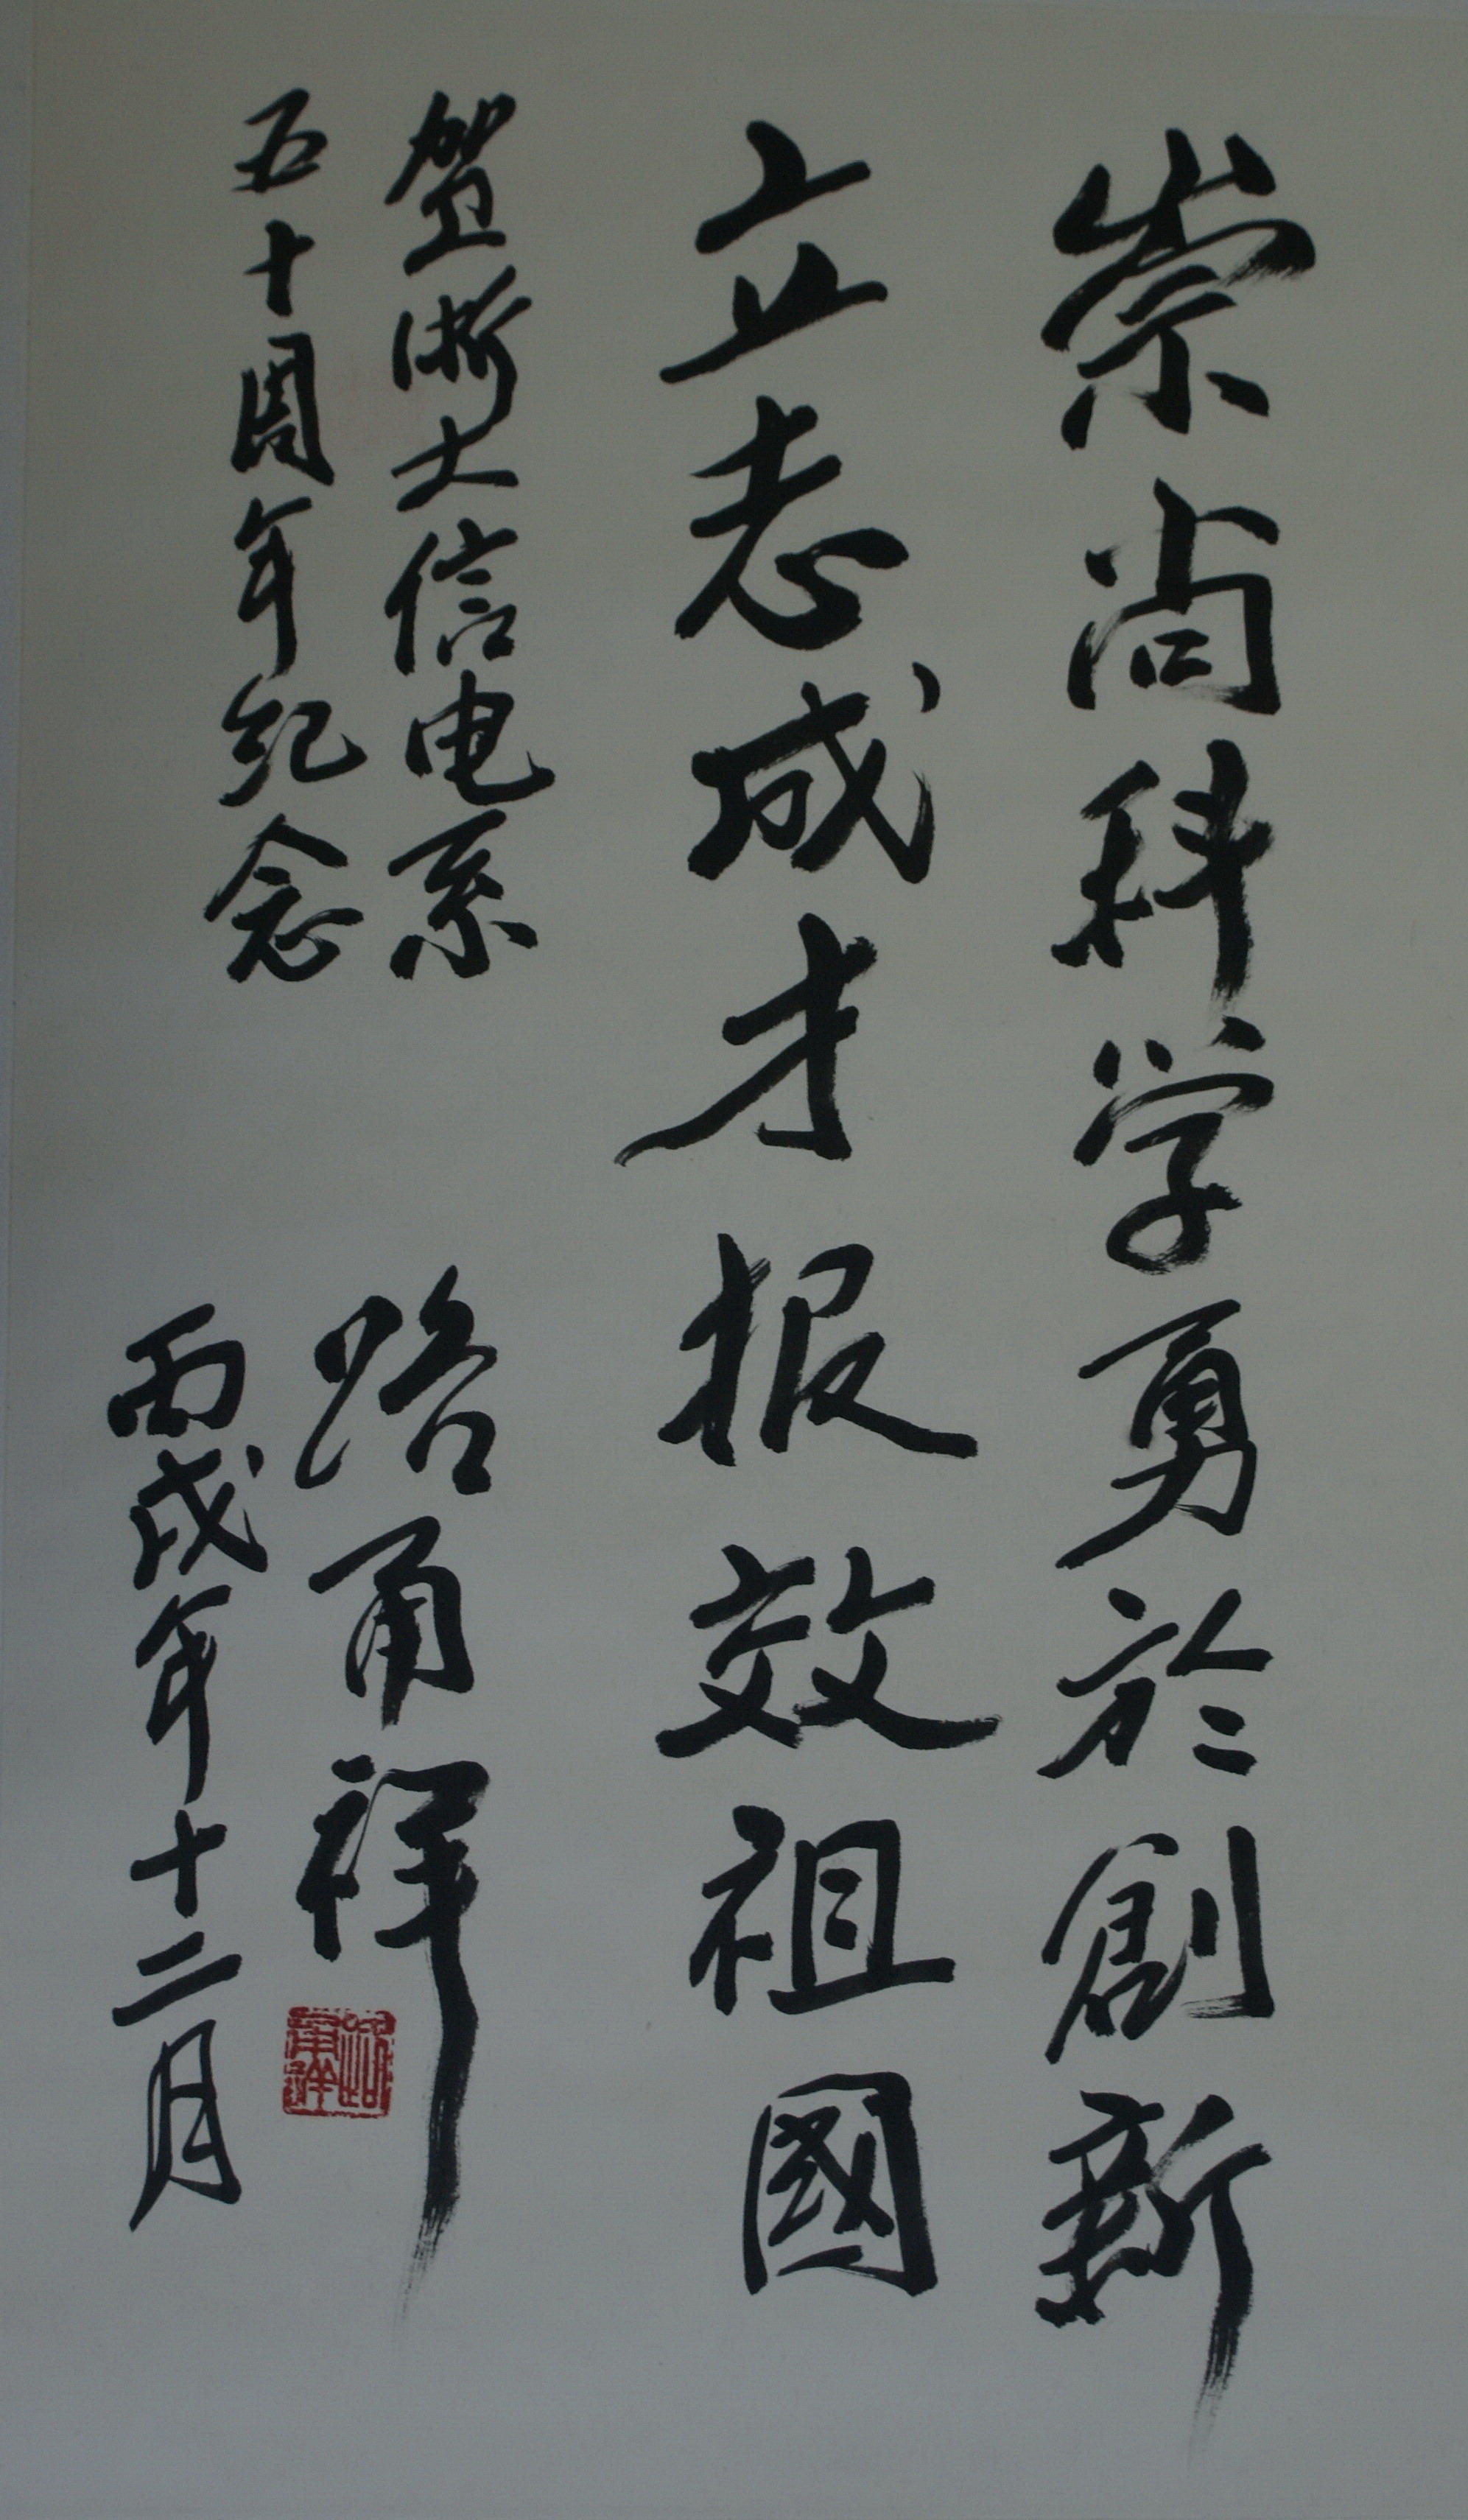 崇尚科学勇於創新
立志成才报效祖國
贺浙大信电系
五十周年纪念
路甬祥
丙戌年十二月
路甬祥